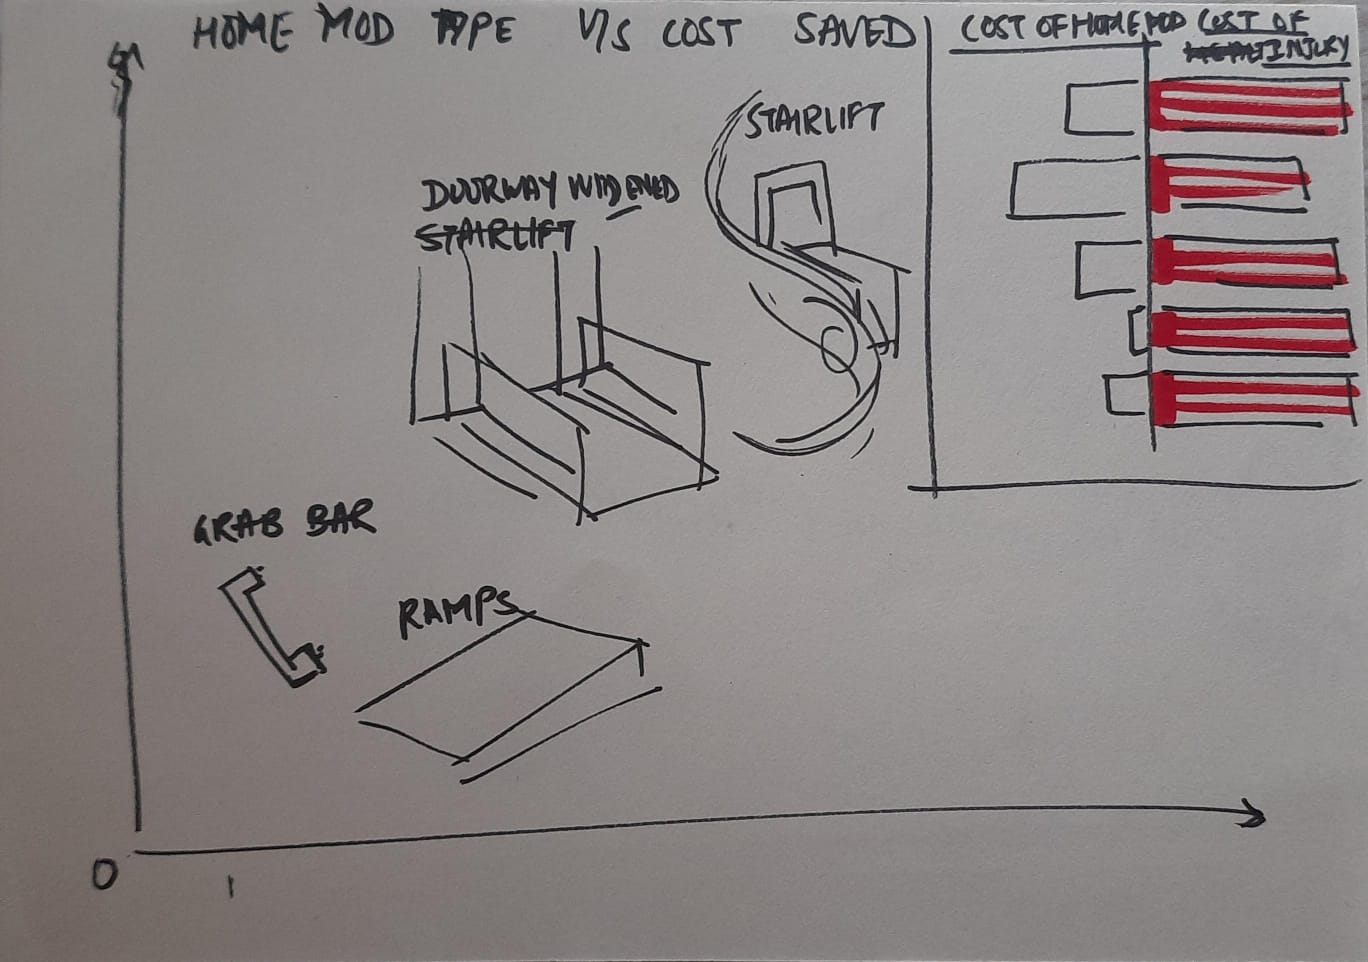 HOME MOD TYPE V/S COST SAVED
COST OF HOME MOD
COST OF
INJURY
STAIRLIFT
DOORWAY WIDENED
STAIRLIFT
GRAB BAR
RAMPS
0
1